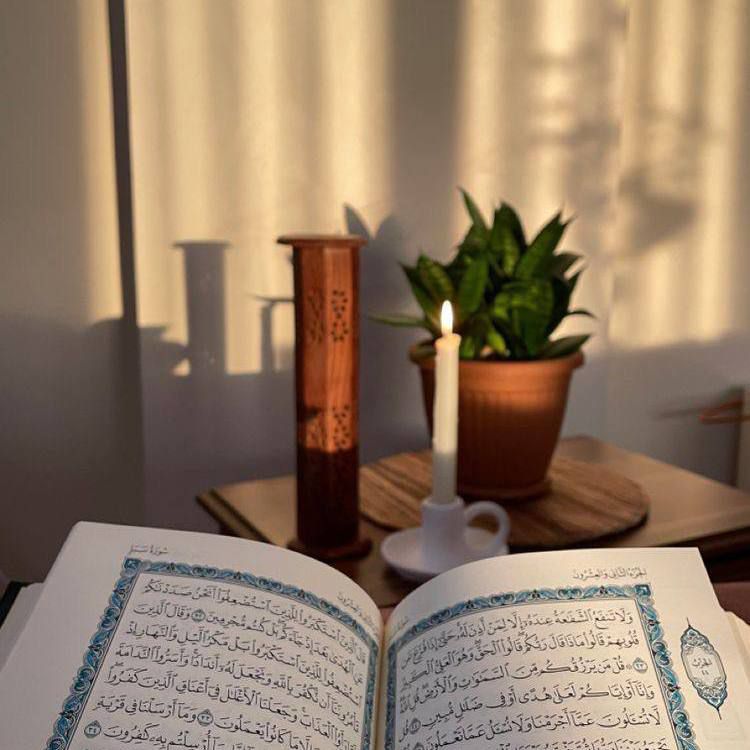 الجزء الثاني والعشرون
وَلَا تَنفَعُ ٱلشَّفَٰعَةُ عِندَهُۥٓ إِلَّا لِمَنْ أَذِنَ لَهُۥ حَتَّىٰٓ إِذَا فُزِّعَ عَن
قُلُوبِهِمْ قَالُوا۟ مَاذَا قَالَ رَبُّكُمْ قَالُوا۟ ٱلْحَقَّ وَهُوَ ٱلْعَلِىُّ ٱلْكَبِيرُ
٢٣ ۞ قُلْ مَن يَرْزُقُكُم مِّنَ ٱلسَّمَٰوَٰتِ وَٱلْأَرْضِ قُلِ ٱللَّهُ
وَإِنَّآ أَوْ إِيَّاكُمْ لَعَلَىٰ هُدًى أَوْ فِى ضَلَٰلٍ مُّبِينٍ ٢٤ قُل
لَّا تُسْـَٔلُونَ عَمَّآ أَجْرَمْنَا وَلَا نُسْـَٔلُ عَمَّا تَعْمَلُونَ ٢٥
الحزب ٤٤
سورة سبأ
قَالَ ٱلَّذِينَ ٱسْتَكْبَرُوا۟ لِلَّذِينَ ٱسْتُضْعِفُوٓا۟ أَنَحْنُ صَدَدْنَٰكُمْ
عَنِ ٱلْهُدَىٰ بَعْدَ إِذْ جَآءَكُم بَلْ كُنتُم مُّجْرِمِينَ ٣٢ وَقَالَ ٱلَّذِينَ
ٱسْتُضْعِفُوا۟ لِلَّذِينَ ٱسْتَكْبَرُوا۟ بَلْ مَكْرُ ٱلَّيْلِ وَٱلنَّهَارِ إِذْ
تَأْمُرُونَنَآ أَن نَّكْفُرَ بِٱللَّهِ وَنَجْعَلَ لَهُۥٓ أَندَادًا وَأَسَرُّوا۟ ٱلنَّدَامَةَ
لَمَّا رَأَوُا۟ ٱلْعَذَابَ وَجَعَلْنَا ٱلْأَغْلَٰلَ فِىٓ أَعْنَاقِ ٱلَّذِينَ كَفَرُوا۟
إِلَّا مَا كَانُوا۟ يَعْمَلُونَ ٣٣ وَمَآ أَرْسَلْنَا فِى قَرْيَةٍ
أُرْسِلْتُم بِهِۦ كَٰفِرُونَ ٣٤